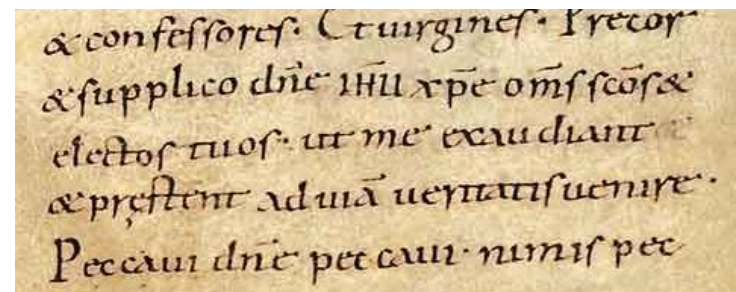 & confessores. Et uirgines. Precor
& supplico dn̄e ihū xp̄e om̄s scōs &
electos tuos. ut me exaudiant
& pręstent ad uiā ueritatis uenire.
Peccaui dn̄e peccaui. nimis pec